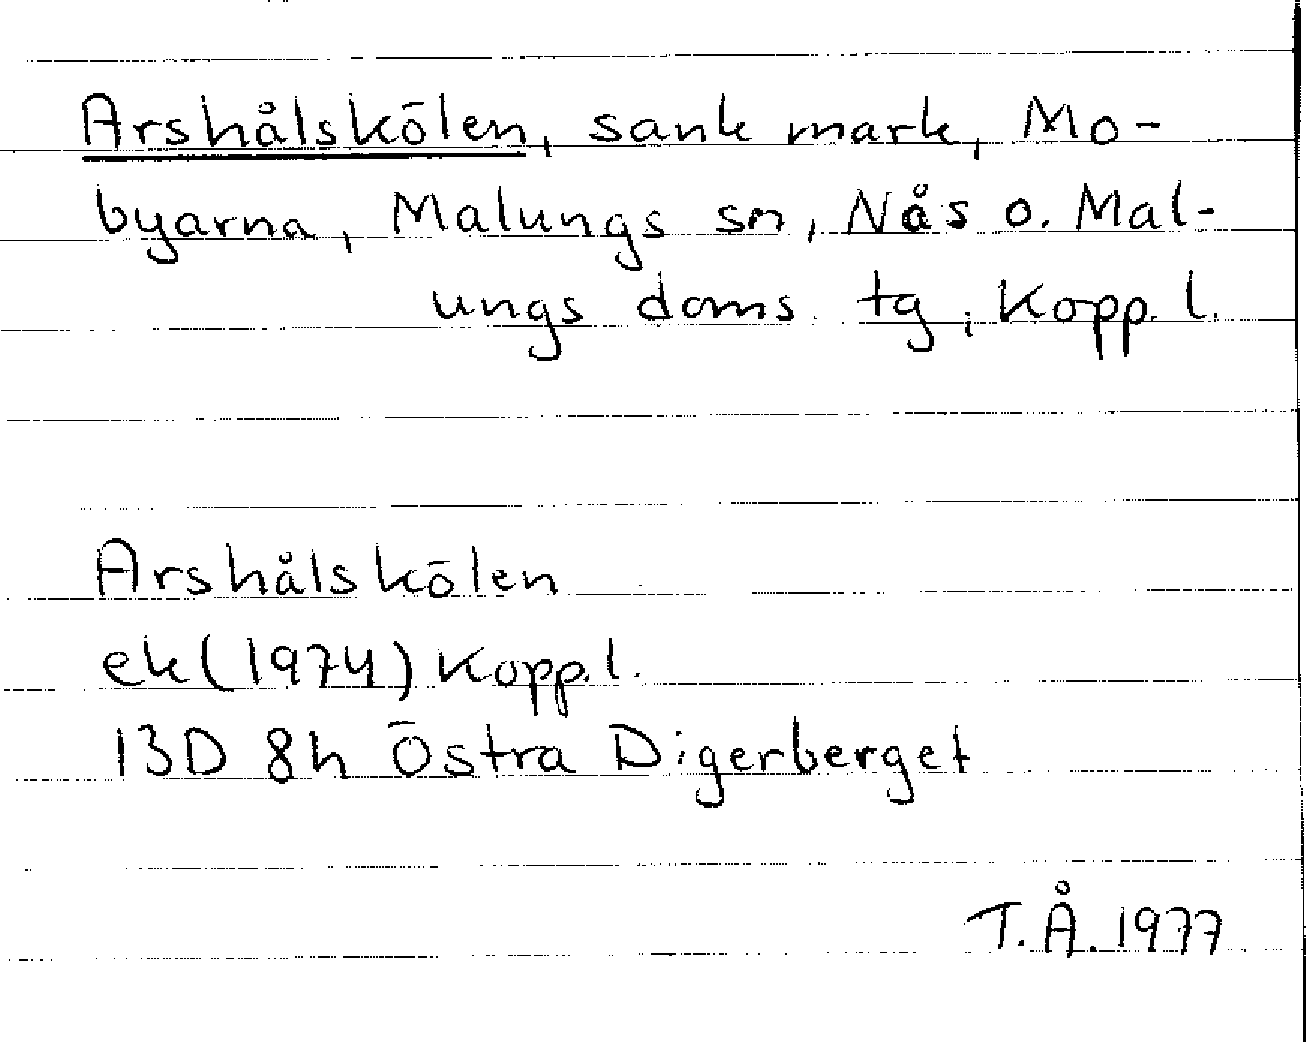 Arshålskölen, sank mark, Mo-
byarna, Malungs sn, Nås o. Mal-
ungs doms. tg, Kopp. l.
Arshålskölen
ek (1974) Kopp. l.
13D 8h Östra Digerberget
T.Å. 1977